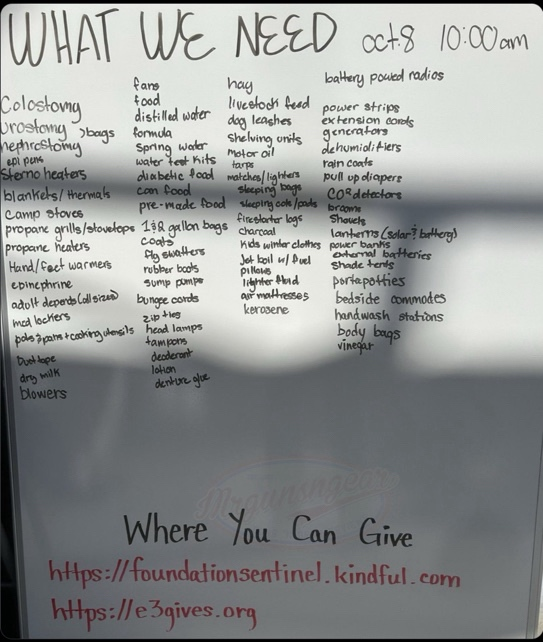 WHAT WE NEED oct 8 10:00am
Colostomy
urostomy >bags
nephrostomy
epi pens
Sterno heaters
blankets/thermals
camp stoves
propane grills/stovetops
propane heaters
Hand/feet warmers
epinephrine
adult depends (all sizes)
med lockers
pots & pans + cooking utensils
Duct tape
dry milk
blowers
fans
food
distilled water
formula
Spring water
water test kits
diabetic food
can food
pre-made food
1&2 gallon bags
coats
fly swatters
rubber boots
sump pumps
bungee cords
zip ties
head lamps
tampons
deodorant
lotion
denture glue
hay
livestock feed
dog leashes
Shelving units
motor oil
tarps
matches/lighters
sleeping bags
sleeping cots/pads
firestarter logs
charcoal
kids winter clothes
Jet boil w/ fuel
pillows
lighter fluid
air mattresses
kerosene
battery powed radios
power strips
extension cords
generators
dehumidifiers
rain coats
pull up diapers
CO2 detectors
brooms
Shovels
lanterns (solar & battery)
power banks
external batteries
shade tents
portapotties
bedside commodes
handwash stations
body bags
vinegar
Mrgunsngear
Where You Can Give
https://foundationsentinel.kindful.com
https://e3gives.org